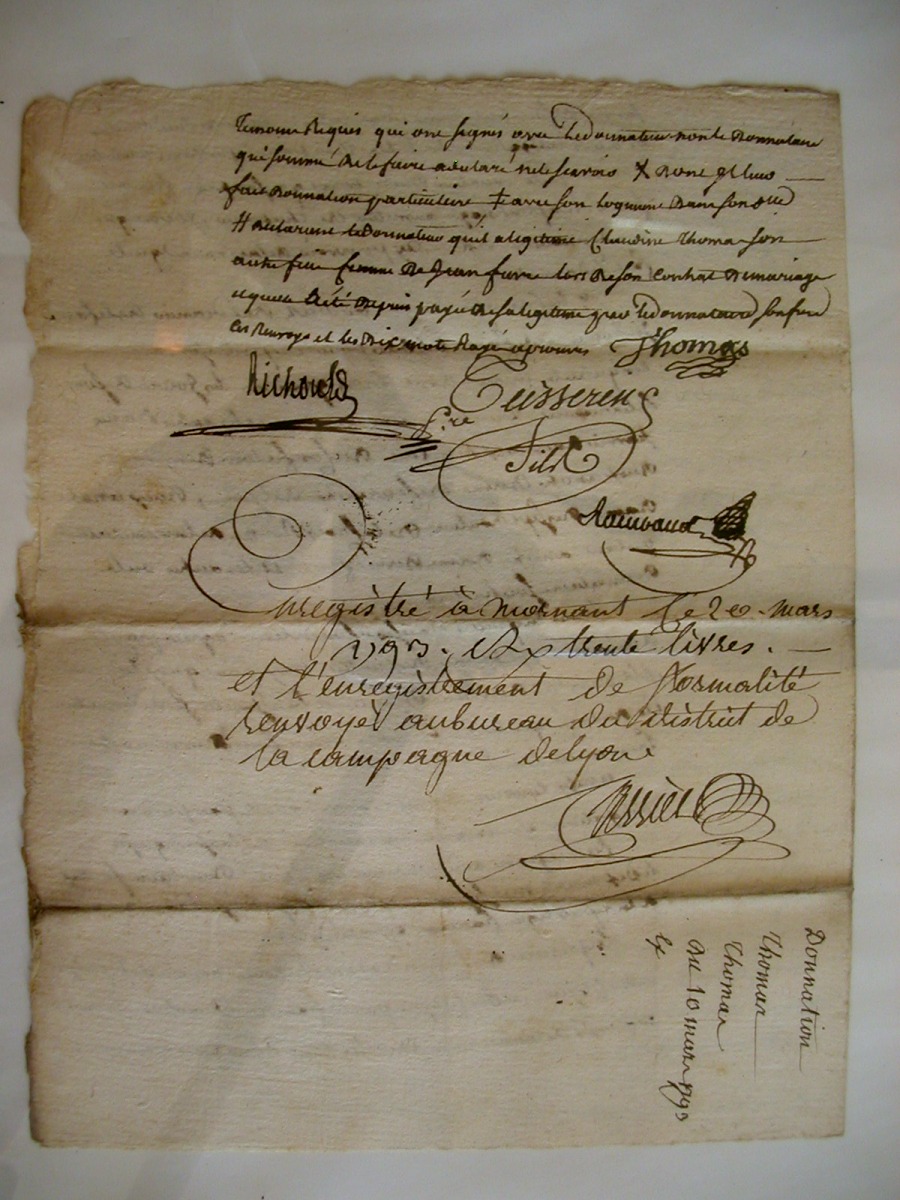 temoins Requis qui ont signés avec le donnateur non le donnataire
qui sommé de le faire a declaré ne le scavoir X dont et luy
fait donnation particuliere ‡ avec son logement dans son
# declarant le donnateur qu'il a legitimé Claudine Thomas son
autre fille femme de Jean favre lors de son contrat de mariage
et quelle a été depuis payé de sa legitime par le donnataire son frere
les renvoys et les dix mots Rayé aprouvés Thomas
Richoud
Teisseren
Pre
fils
Raimbaud
Enregistré à mornant le 20. mars
1793. trente livres.
et l'enregistrement de formalité
renvoyé au bureau du district de
la campagne de lyon
Donnation
Thomas
Thomas
du 10 mars 1793